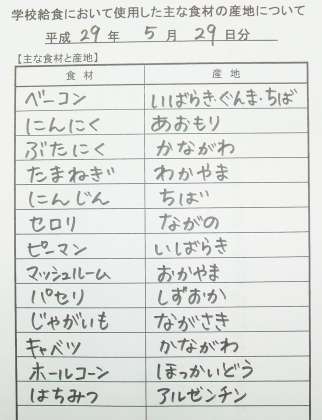 学校給食において使用した主な食材の産地について
平成 29 年 5 月 29 日分
【主な食材と産地】
食材 産地
ベーコン いばらき・ぐんま・ちば
にんにく あおもり
ぶたにく かながわ
たまねぎ わかやま
にんじん ちば
セロリ ながの
ピーマン いばらき
マッシュルーム おかやま
パセリ しずおか
じゃがいも ながさき
キャベツ かながわ
ホールコーン ほっかいどう
はちみつ アルゼンチン